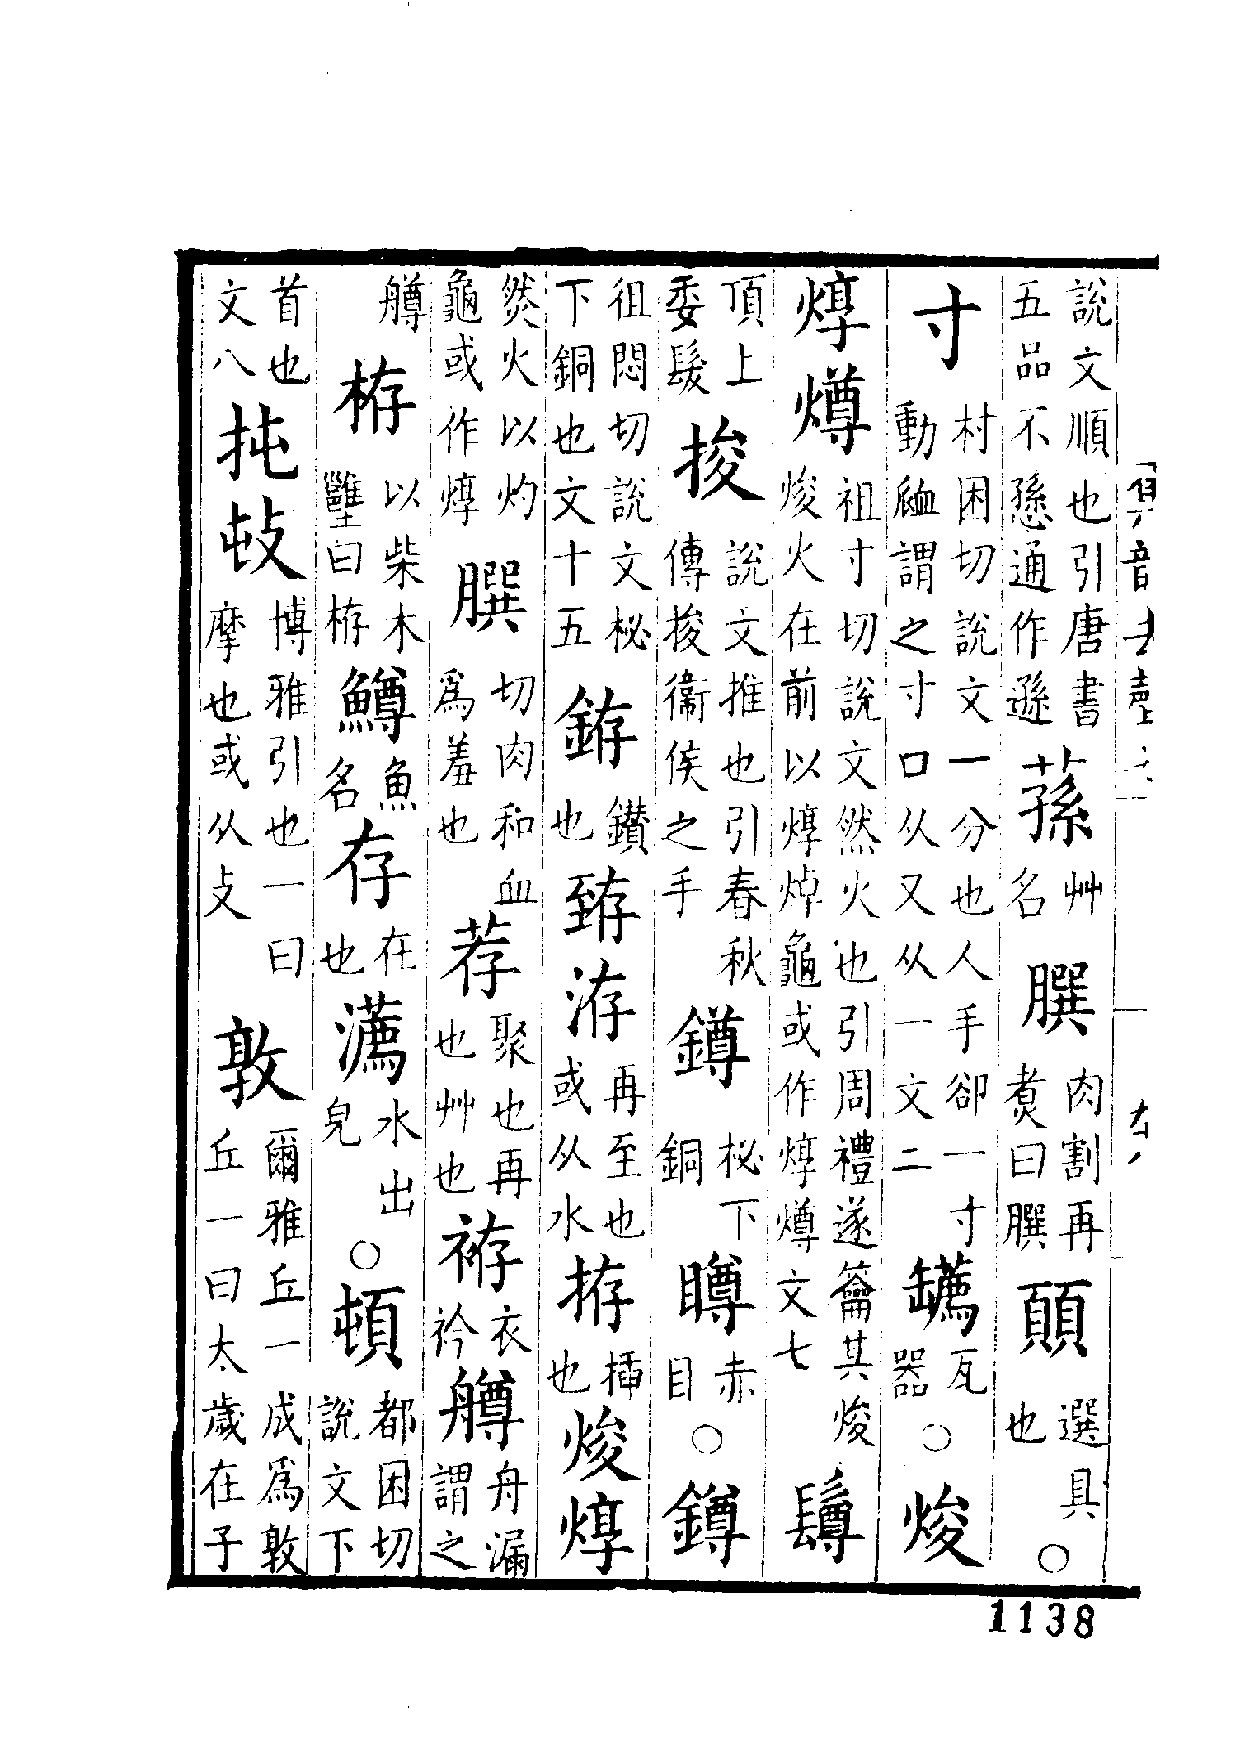 說文順也引唐書五品不愻通作遜蓀艸名䐣肉割再煑曰䐣顊選具也○
寸村困切說文一分也人手卻一寸動䘑謂之寸口从又从一文二瓦器○焌
焞燇祖寸切說文然火也引周禮遂籥其焌焌火在前以焞焯龜或作焞燇文七
頂上委髮捘說文推也引春秋傳捘衞侯之手鐏柲下銅赤目○鐏
徂悶切說文柲下銅也文十五鑚也臶洊再至也或从水拵插也焌焞
然火以灼龜或作焞䐣切肉和血爲羞也荐聚也再也艸也衣衿舟漏謂之
栫以柴木壅曰栫鱒魚名存在也瀳水出皃○頓都困切說文下
首也文八扽博雅引也一曰摩也或从攴敦爾雅丘一成爲敦丘一曰太歲在子
1138